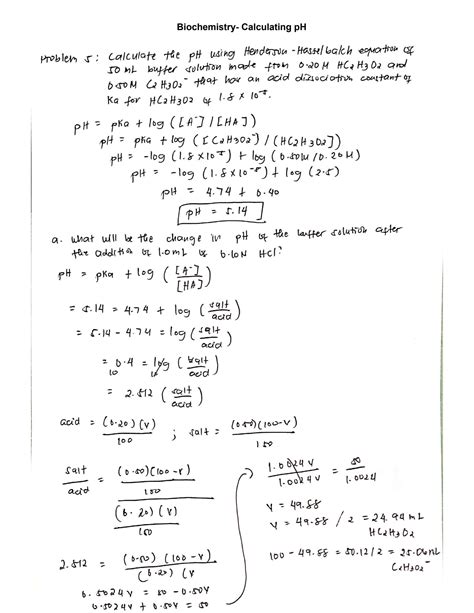 Biochemistry- Calculating pH
Problem 5: Calculate the pH using Henderson-Hasselbalch equation of
50 mL buffer solution made from 0.20M HC2H3O2 and
0.50M C2H3O2⁻ that has an acid dissociation constant of
Ka for HC2H3O2 of 1.8 x 10⁻⁵.
pH = pKa + log ([A⁻]/[HA])
pH = pKa + log ([C2H3O2⁻]/(HC2H3O2])
pH = -log (1.8 x 10⁻⁵) + log (0.50M/0.20M)
pH = -log (1.8 x 10⁻⁵) + log (2.5)
pH = 4.74 + 0.40
pH = 5.14
a. What will be the change in pH of the buffer solution after
the addition of 1.0mL of 0.10N HCl?
pH = pKa + log ([A⁻]/[HA])
= 5.14 = 4.74 + log (salt/acid)
= 5.14 - 4.74 = log (salt/acid)
= 0.4 = log (salt/acid)
10 10
= 2.512 (salt/acid)
acid = (0.20)(V)/100 ; salt = (0.50)(100-V)/100
salt/acid = (0.50)(100-V)/100 / (0.20)(V)/100
2.512 = (0.50)(100-V)/(0.20)(V)
0.5024V = 50 - 0.50V
0.5024V + 0.50V = 50
1.0024V/1.0024V = 50/1.0024
V = 49.88
V = 49.88 / 2 = 24.94 mL
HC2H3O2
100 - 49.88 = 50.12/2 = 25.06mL
C2H3O2⁻